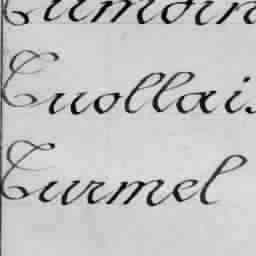 Tumoin
Tuollais
Turmel